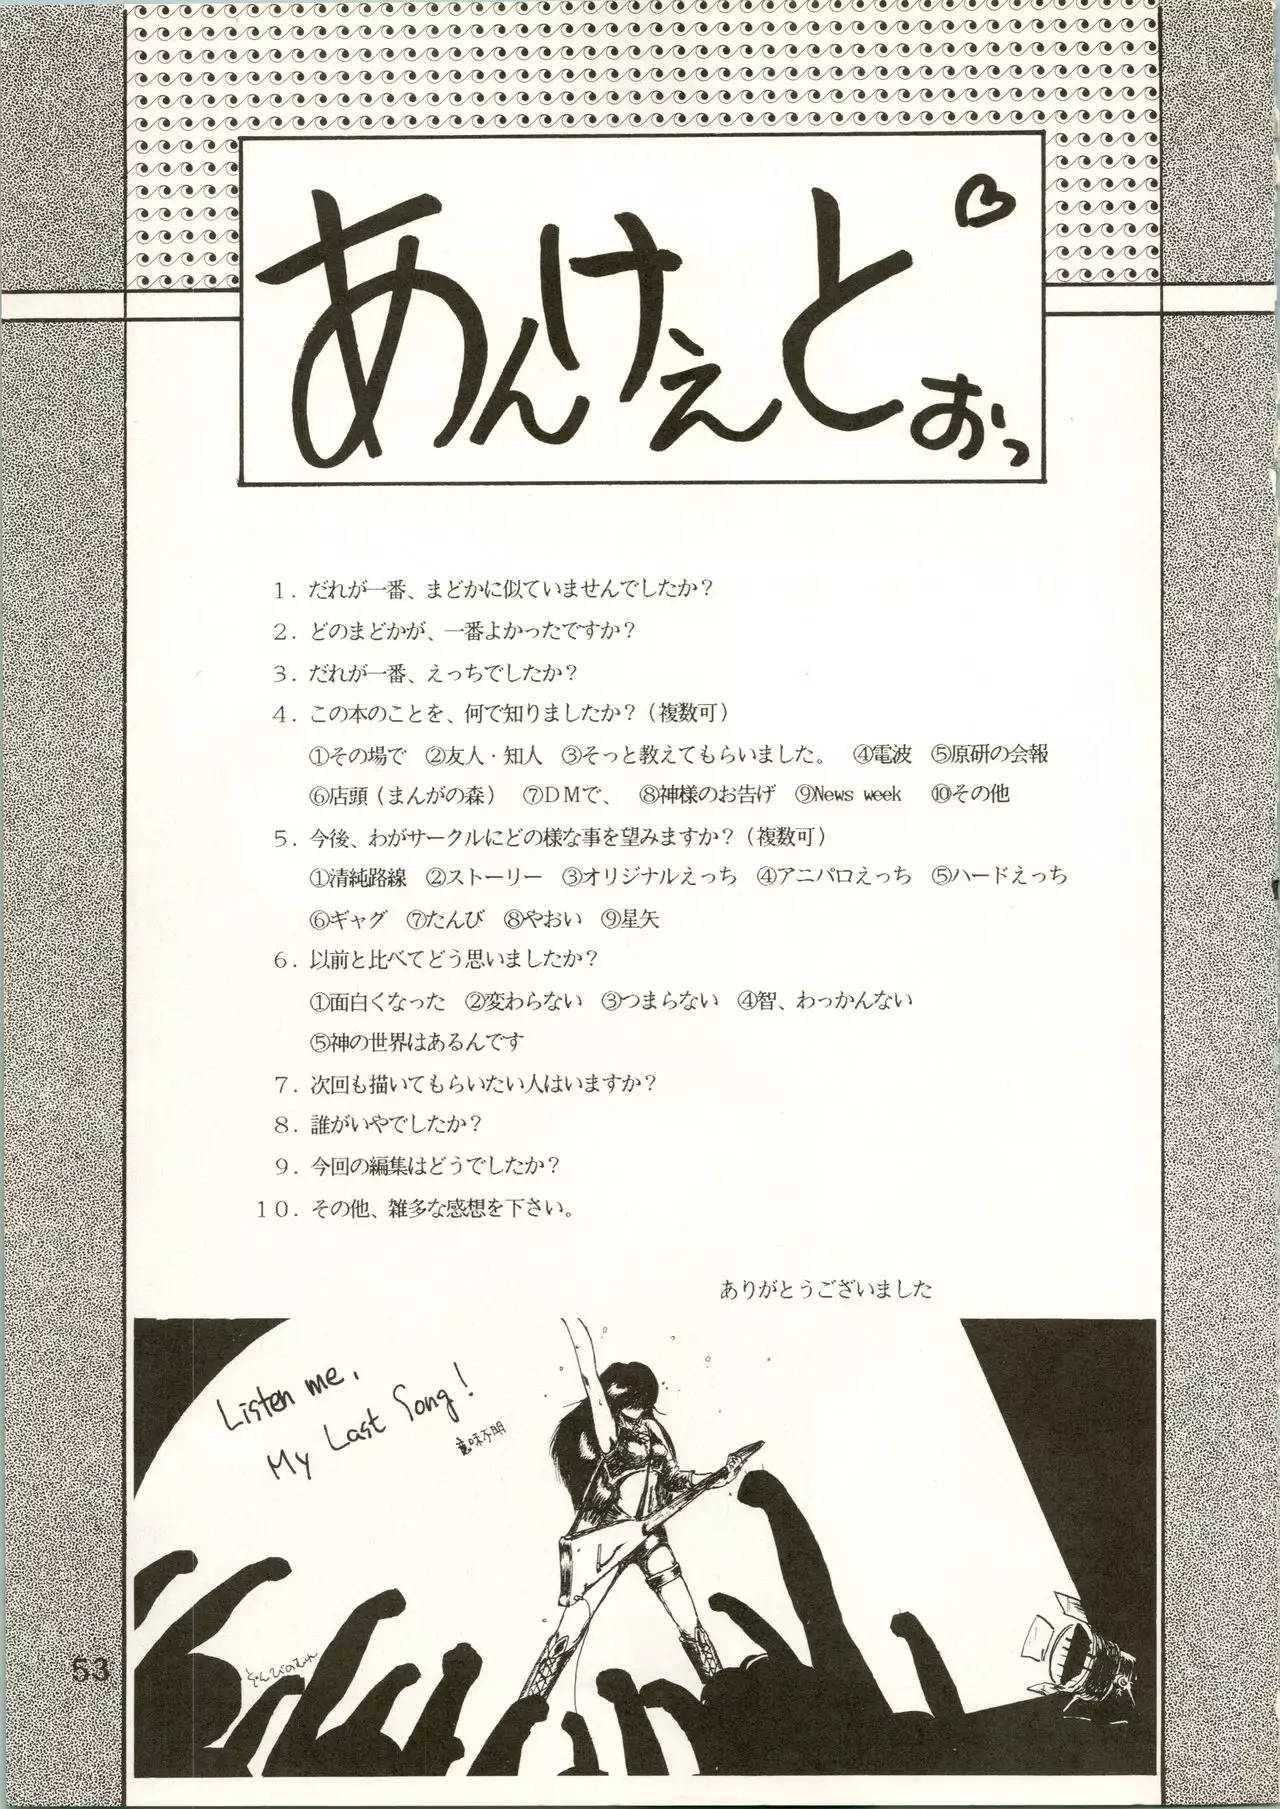 あんけぇとぉっ
1．だれが一番、まどかに似ていませんでしたか？
2．どのまどかが、一番よかったですか？
3．だれが一番、えっちでしたか？
4．この本のことを、何で知りましたか？（複数可）
①その場で　②友人・知人　③そっと教えてもらいました。　④電波　⑤原研の会報
⑥店頭（まんがの森）　⑦DMで、　⑧神様のお告げ　⑨News week　⑩その他
5．今後、わがサークルにどの様な事を望みますか？（複数可）
①清純路線　②ストーリー　③オリジナルえっち　④アニパロえっち　⑤ハードえっち
⑥ギャグ　⑦たんび　⑧やおい　⑨星矢
6．以前と比べてどう思いましたか？
①面白くなった　②変わらない　③つまらない　④智、わっかんない
⑤神の世界はあるんです
7．次回も描いてもらいたい人はいますか？
8．誰がいやでしたか？
9．今回の編集はどうでしたか？
10．その他、雑多な感想を下さい。
ありがとうございました
Listen me,
My Last Song!
意味不明
ぞんびのむれ
53